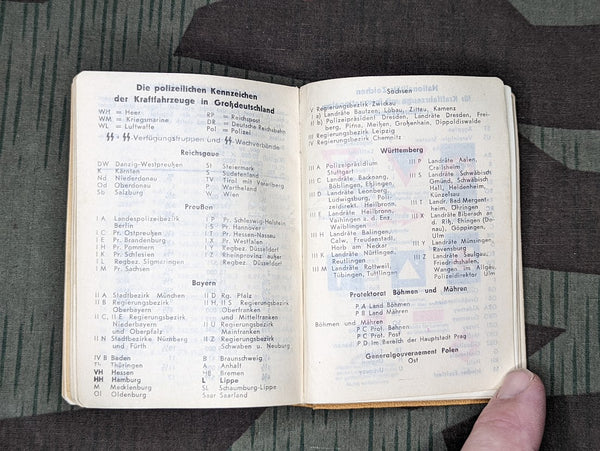 Die polizeilichen Kennzeichen
der Kraftfahrzeuge in Großdeutschland
WH = Heer RP = Reichspost
WM = Kriegsmarine DR = Deutsche Reichsbahn
WL = Luftwaffe Pol = Polizei
Verfügungstruppen und Wachverbände
Reichsgaue
DW Danzig-Westpreußen St Steiermark
K Kärnten S Sudetenland
Nd Niederdonau TV Tirol mit Vorarlberg
Od Oberdonau P Wartheland
Sb Salzburg W Wien
Preußen
I A Landespolizeibezirk Berlin
I C Pr. Ostpreußen
I E Pr. Brandenburg
I H Pr. Pommern
I K Pr. Schlesien
I L Regbez. Sigmaringen
I M Pr. Sachsen
I P Pr. Schleswig-Holstein
I S Pr. Hannover
I T Pr. Hessen-Nassau
I X Pr. Westfalen
I Y Regbez. Düsseldorf
I Z Rheinprovinz außer
Regbez. Düsseldorf
Bayern
II A Stadtbezirk München
II B Regierungsbezirk
Oberbayern
II C, II E Regierungsbezirk
Niederbayern
und Oberpfalz
II N Stadtbezirk Nürnberg
und Fürth
II D Rg. Pfalz
II H, II S Regierungsbezirk
Ober- und Mittelfranken
II U Regierungsbezirk
Mainfranken
II Z Regierungsbezirk
Schwaben u. Neuburg
IV B Baden B Braunschweig
Th Thüringen A Anhalt
VH Hessen HB Bremen
HH Hamburg L Lippe
M Mecklenburg SL Schaumburg-Lippe
Ol Oldenburg Saar Saarland
Sachsen
V Regierungsbezirk Zwickau
I a) Landräte Bautzen, Löbau, Zittau, Kamenz
II b) Polizeipräsident Dresden, Landräte Dresden, Freiberg,
Pirna, Meißen, Großenhain, Dippoldiswalde
III Regierungsbezirk Leipzig
IV Regierungsbezirk Chemnitz
Württemberg
III A Polizeipräsidium
Stuttgart
III C Landräte Backnang,
Böblingen, Eßlingen,
III D Landräte Leonberg,
Ludwigsburg, Polizeidirekt.
Heilbronn
III E Landräte Heilbronn,
Vaihingen a. d. Enz,
Waiblingen
III H Landräte Balingen,
Calw, Freudenstadt,
Horb am Neckar
III K Landräte Nürtingen,
Reutlingen
III M Landräte Rottweil,
Tübingen, Tuttlingen
III P Landräte Aalen,
Crailsheim
III S Landräte Schwäbisch
Gmünd, Schwäbisch
Hall, Heidenheim,
Künzelsau
III T Landr. Bad Mergentheim,
Öhringen
III X Landräte Biberach an
d. Riß, Ehingen (Donau),
Göppingen,
Ulm
III Y Landräte Münsingen,
Ravensburg
III Z Landräte Saulgau,
Friedrichshafen,
Wangen im Allgäu,
Polizeidirektor Ulm
Protektorat Böhmen und Mähren
P A Land Böhmen
P B Land Mähren
Böhmen und Mähren
P C Prot. Behörd.
P C Prof. Post
P D Im Bereich der Hauptstadt Prag
Generalgouvernement Polen
Ost